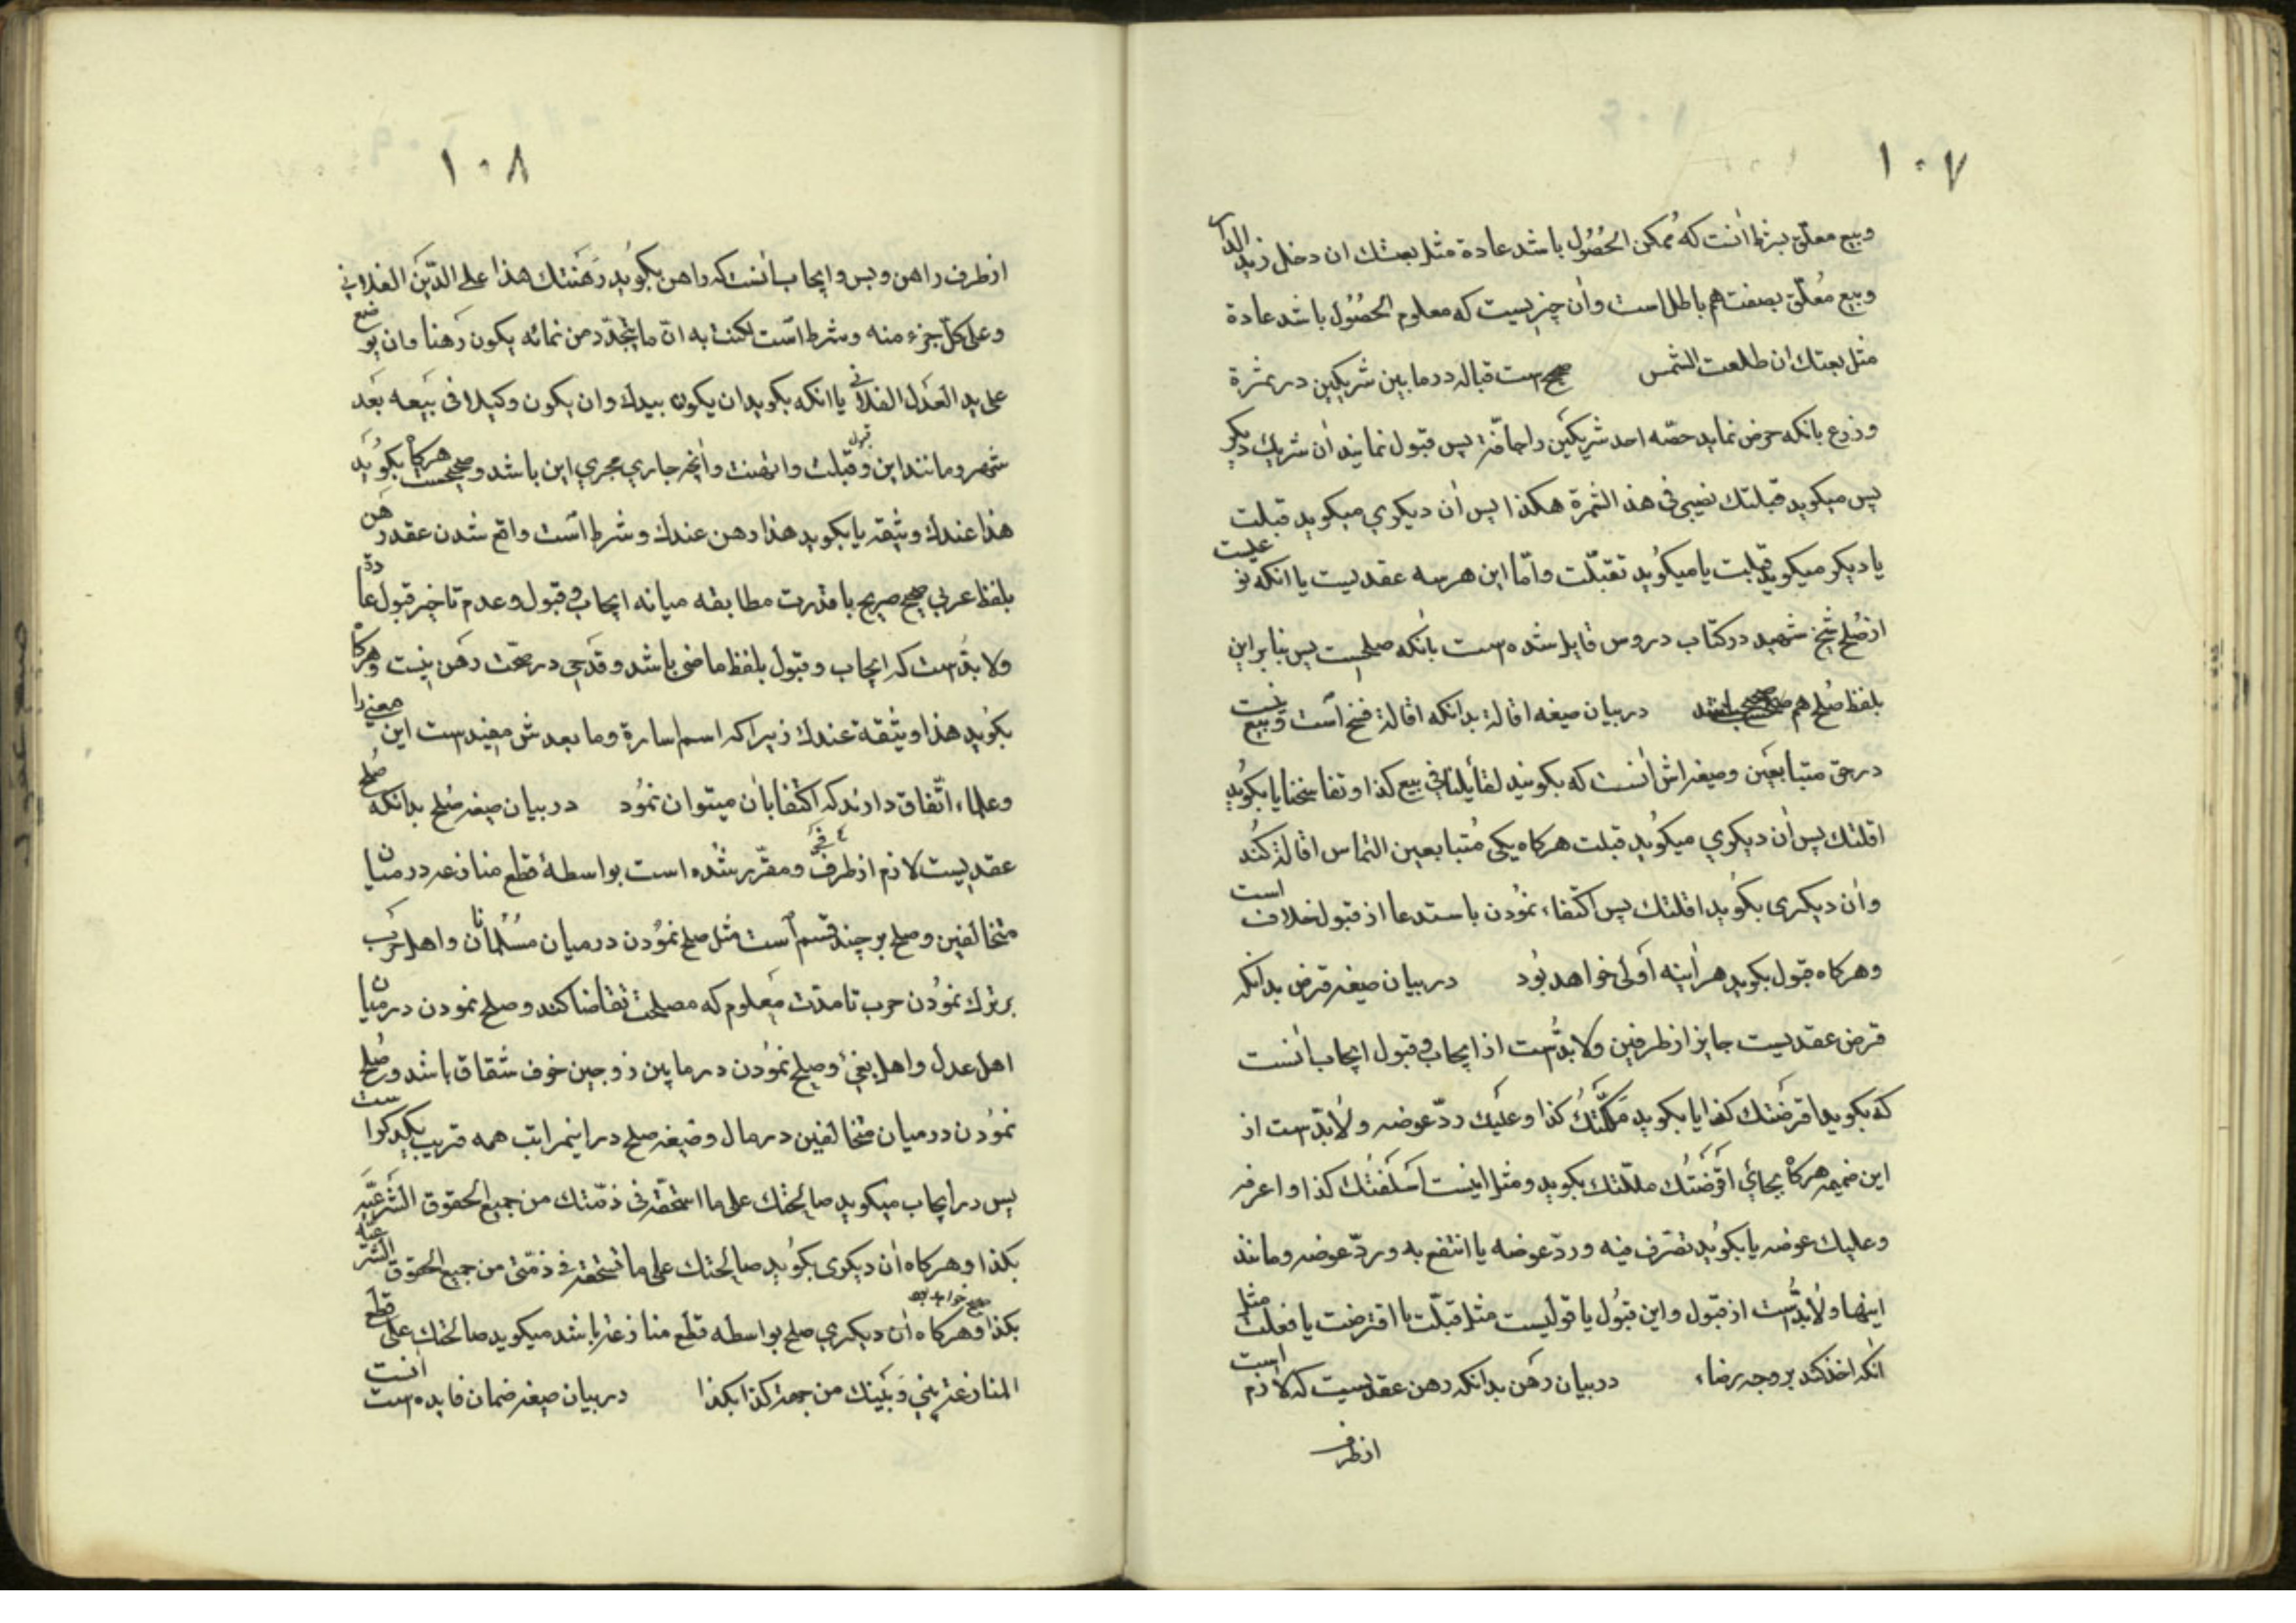 ١٠٧
وبیع معلّق بشرط آنست که مُمکن الحُصُول باشد عادة مثل بعتك ان دخل زید الدار
وبیع مُعلّق بصفت هم باطل است وآن چیزیست که معلوم الحصُول باشد عادة
مثل بعتك ان طلعت الشمس صحیح است قباله در مابین شریکین در ثمرة
وزرع بانکه حرض نماید حصّه احد شریکین را پس قبول نماید آن شریك دیکر
پس میکوید قبلتك نصیبی فی هذ الثمرة هکذا پس آن دیکری میکوید قبلت
یا دیکر میکوید قبلت یا میکوُید تقبّلت وامّا این هرسه عقدیست یا انکه نوعیست
از صُلح شیخ شهید در کتاب دروس قایل شده است بانکه صلحست پس بنابراین
بلفظ صُلح هم در بیان صیغه اقالة بدانکه اقالة فسخ است وبیع نیست
در حق متبایعَین وصیغه اش آنست که بکویند تقایلنا فی بیع کذا وتفاسخنا یا بکوُید
اقلتك پس آن دیکری میکوُید قبلت هرکاه یکی مُتبایعین التماس اقالة کُند
وآن دیکری بکوُید اقلتك پس اکتفاء نموُدن باستدعا از قبول خلاف است
وهرکاه قبول بکوید هرآینه اَولی خواهد بوُد در بیان صیغه قرض بدانکه
قرض عقدیست جایز از طرفین ولابدُّست از ایجاب وقبول ایجاب آنست
که بکوید اقرضتك کذا یا بکوید مَلّکتُكَ کذا وعلَیك ردّ عوضه ولابدّست از
این ضمیمه هرکاه بجایِ اقرَضتُك ملّکتك بکوید ومثل اینست اَسلَفتُك کذا واعرفه
وعلیك عوضه یا بکوُید تصّرف فیه وردّ عوضه یا انتفع به وردّ عوضه ومانند
اینها ولابدُّست از قبول واین قبوُل یا قولیست مثل قبلّت یا اقترضت یا فعلست مثل
آنکه اخذ کند بر وجه رضاء در بیان رَهن بدانکه رهن عقدیست که لازم است
از طرف
١٠٨
از طرف راهن وبس وایجاب آنست که راهن بکوُید رَهَنتك هذا علی الدَّین الفلانی
وعلی کلّ جزء منه وشرط است لکنت به انّ ما یتجدّد من نمائه یکون رَهنا وان یوضع
علی ید العَدل الفلانی یا انکه بکوید ان یکون بیدك وان یکون وکیلا فی بَیعه بَعد
شهر ومانند این وقبول قبلت وارتهنت وآنچه جاری مجری این باشد وصحیحست هرکاه بکوُید
هذا عندك وثیقه یا بکوید هذا رهن عندك وشرط است واقع شدن عقد رهن
بلفظ عربی صحیح صریح با قدرت مطابقه میانه ایجاب وقبول وعدم تاخیر قبول عادة
ولابدُّست که ایجاب وقبول بلفظ ماضی باشد وقدحی در صحّت رَهن نیست وهرکاه
بکوُید هذا وثیقة عندك زیرا که اسم اشارة وما بعدش مفیدست این معنی را
وعلماء اتّفاق دارند که اکتفا بآن میتوان نموُد در بیان صیغه صُلح بدانکه صُلح
عقدیست لازم از طرفَین ومقرّر شده است بواسطهٔ قطع منازعه در میان
متخالفین وصلح بر چند قسم است مثل صلح نموُدن در میان مسُلمانان واهل حرَب
بر ترك نموُدن حرب تا مدت مَعلوم که مصلحت تقاضا کند وصلح نمودن در میان
اهل عدل واهل بغی وصلح نموُدن در مابین زوجین خوف شقاق باشد وصُلح
نموُدن در میان متخالفین در مال وصیغه صلح در اینمراتب همه قریب بیکدیکراست
پس در ایجاب میکوید صالحتك علی ما استحقّه فی ذمّتك من جمیع الحقوق الشَرعیّه
بکذا وهرکاه آن دیکری بکوُید صالحتك علی ما تستحقه فی ذمّتی من جمیع الحقوق الشرعیه
بکذا صحیح خواهد بود وهرکاه آن دیکری صلح بواسطه قطع منازعه باشد میکوید صالحتك علی قطع
المنازعة بینی وَبَینك من جهة کذا بکذا در بیان صیغه ضمان فایده است آنست